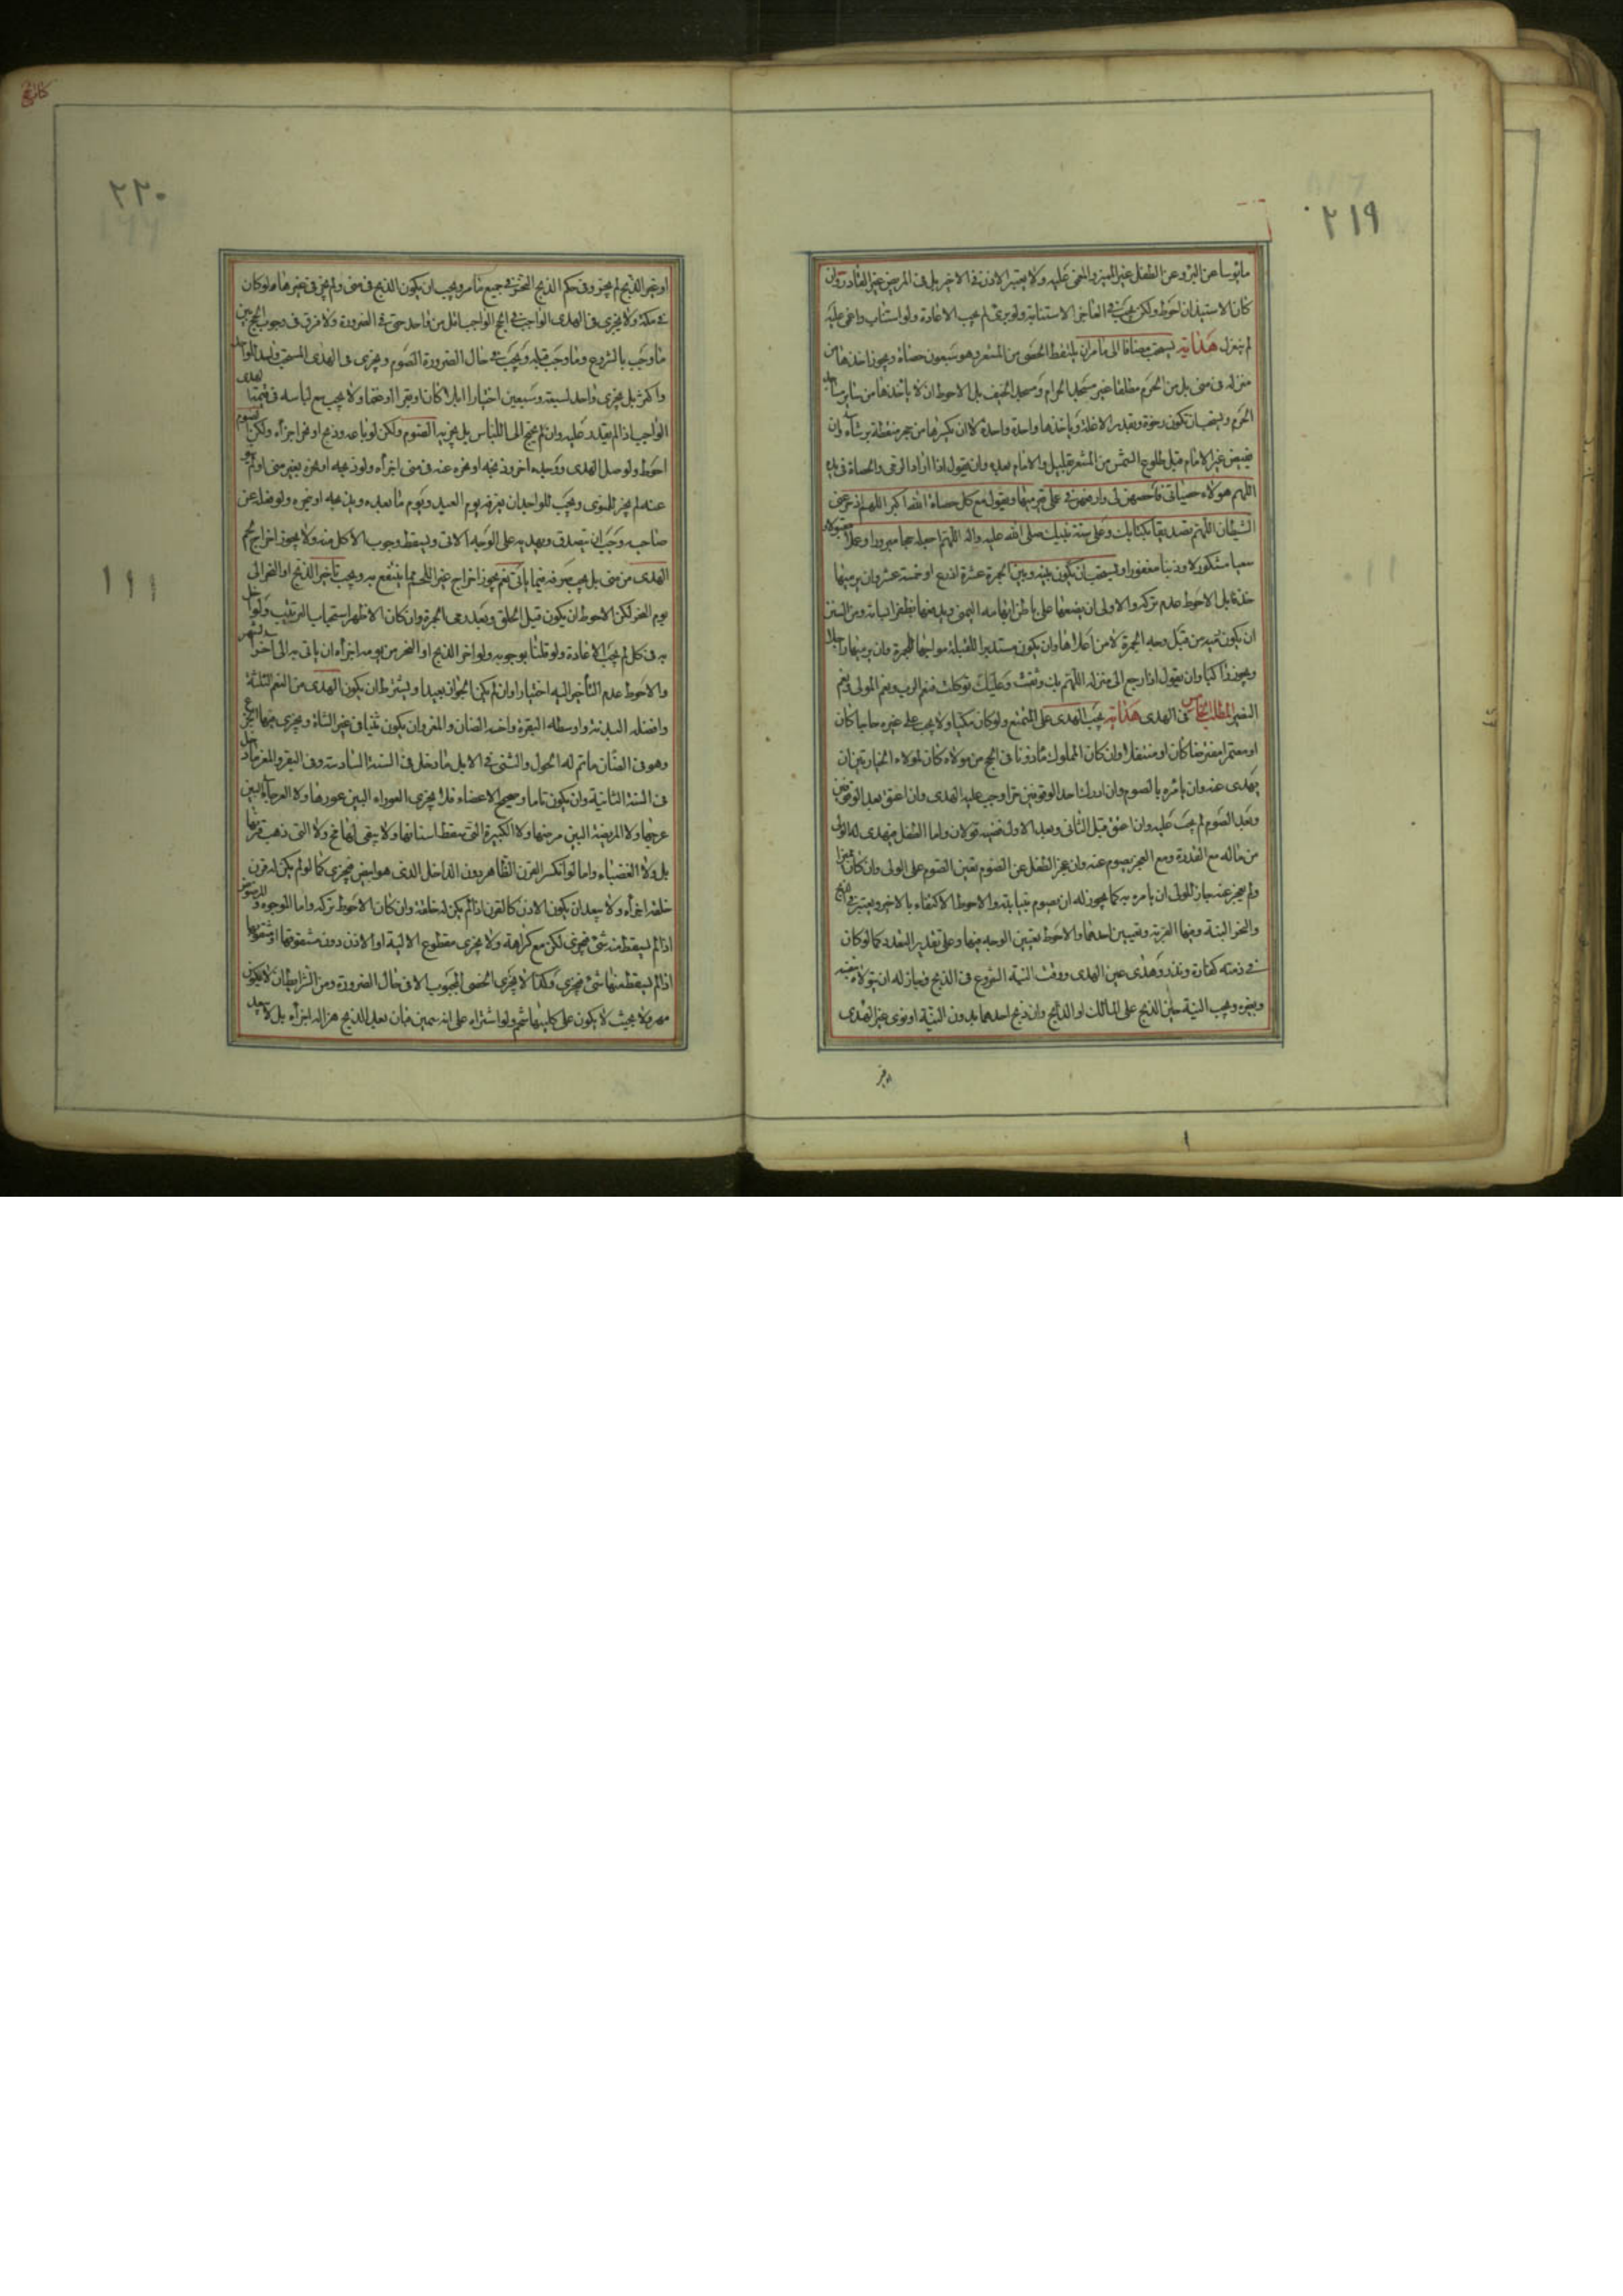 ٢١٩
مايوسا عن البرء وعن الطفل غير المميز والمغمى عليه ولا يعتبر الاذن في الاخير بل في المريض غير القادر وان
كان الاستيذان احوط ولكن يجب في العاجز الاستنابة ولو برئ لم يجب الاعادة ولو استناب واغمى عليه
لم ينعزل هداية يستحب مضافا الى ما مر ان يلتقط الحصى من المشعر وهو سبعون حصاة ويجوز اخذها من
منزله في منى بل من الحرم مطلقا غير مسجد الحرام ومسجد الخيف بل الاحوط ان لا ياخذها من ساير مساجد
الحرم ويستحب ان تكون رخوة وبقدر الانملة وياخذها واحدة واحدة لا ان يكسرها من حجر منقطة برشاء وان
يفيض غير الامام قبل طلوع الشمس من المشعر بقليل والامام بعده وان يقول اذا اراد الرمي والحصاة في يده
اللهم هولاء حصياتي فاحصهن لي وارفعهن في عملي ثم يرميها ويقول مع كل حصاة الله اكبر اللهم ادحر عني
الشيطان اللهم تصديقا بكتابك وعلى سنة نبيك صلى الله عليه واله اللهم اجعله حجا مبرورا وعملا مقبولا و
سعيا مشكورا وذنبا مغفورا ويستحب ان يكون بينه وبين الجمرة عشرة اذرع او خمسة عشر وان يرميها
خذفا بل الاحوط عدم تركه والاولى ان يضعها على باطن ابهام يده اليمنى ويدفعها بظفر السبابة ومن السنن
ان يكون رميه من قبل وجه الجمرة لا من اعلاها وان يكون مستدبرا للقبلة مواجها للجمرة وان يرميها راجلا
ويجوز راكبا وان يقول اذا رجع الى منزله اللهم بك وثقت وعليك توكلت فنعم الرب ونعم المولى ونعم
النصير المطلب الخامس في الهدى هداية يجب الهدى على المتمتع ولو كان مكيا ولا يجب على غيره حاجا كان
او معتمرا مفترضا كان او متنفلا وان كان المملوك ماذونا في الحج من مولاه كان لمولاه الخيار بين ان
يهدى عنه وان يامره بالصوم وان ادرك احد الموقفين حرا وجب عليه الهدى وان اعتق بعد الوقوفين
وبعد الصوم لم يجب عليه وان اعتق قبل الثاني وبعد الاول ففيه قولان واما الطفل فيهدى له الولى
من ماله مع القدرة ومع العجز يصوم عنه وان عجز الطفل عن الصوم تعين الصوم على الولى وان كان مميزا
ولم يعجز عنه جاز للولى ان يامره به كما يجوز له ان يصوم نيابة والاحوط الاكتفاء بالاخير ويعتبر في الذبح
والنحر النية وفيها القربة وتعيين احدهما والاحوط تعيين الوجه فيها وعلى تقدير التعدد كما لو كان
في ذمته كفارة ونذر وهدى عين الهدى ووقت النية الشروع في الذبح وجاز له ان يتولاه بنفسه
وبغيره ويجب النية حين الذبح على المالك او الذابح وان ذبح احدهما بدون النية او نوى غير الهدى
٢٢٠
او غير الذبح لم يجز وفي حكم الذبح النحر في جميع ما مر ويجب ان يكون الذبح في منى ولم يجز في غيرها ولو كان
في مكة ولا يجزى في الهدى الواجب في الحج الواجب اقل من واحد حتى في الضرورة ولا فرق في وجوب الحج بين
ما وجب بالشروع وما وجب قبله ويجب في حال الضرورة الصوم ويجزى في الهدى المستحب واحد للواحد
واكثر بل يجزى واحد لسبعة وسبعين اختيارا ابلا كان او بقرا او غنما ولا يجب بيع لباسه في قيمة الهدى
الواجب اذا لم يقدر عليه وان لم يحتج الى اللباس بل يجزيه الصوم ولكن لو باعه وذبح او نحر اجزأه ولكن الصوم
احوط ولو ضل الهدى ووجده اخر وذبحه او نحره عنه في منى اجزأه ولو ذبحه او نحره بغير منى او لم ينو
عنه لم يجز للمنوى ويجب للواجد ان يعرفه يوم العيد ويوم ما بعده ويذبحه او ينحره ولو فقد عن
صاحبه وجب ان يتصدق ويهديه على الوجه الاتى ويسقط وجوب الاكل منه ولا يجوز اخراج لحم
الهدى من منى بل يجب صرفه فيما ياتى نعم يجوز اخراج غير اللحم مما ينتفع به ويجب تاخير الذبح او النحر الى
يوم النحر لكن الاحوط ان يكون قبل الحلق وبعد رمى الجمرة وان كان الاظهر استحباب الترتيب ولو اخل
به في كل لم يجب الاعادة ولو قلنا بوجوبه ولو اخر الذبح او النحر من يومه اجزأه ان ياتى به الى اخر الشهر
والاحوط عدم التأخير اليه اختيارا وان لم يكن الجواز بعيدا ويشترط ان يكون الهدى من النعم الثلثة
وافضله البدنة واوسطه البقرة واخسه الضان والمعز وان يكون ثنيا في غير الشاة ويجزى فيها الجذع
وهو في الضان ما تم له الحول والثنى في الابل ما دخل في السنة السادسة وفي البقر والمعز ما دخل
في السنة الثانية وان يكون تاما وصحيح الاعضاء فلا يجزى العوراء البين عورها ولا العرجاء البين
عرجها ولا المريضة البين مرضها ولا الكبيرة التى سقط اسنانها ولا يبقى لها مخ ولا التى ذهب قرنها
بل ولا الغضباء واما لو انكسر القرن الظاهر دون الداخل الذى هو ابيض فيجزى كما لو لم يكن له قرن
خلقة اجزأه ولا يبعد ان يكون الاذن كالقرن اذا لم يكن له خلقة وان كان الاحوط تركه واما الموجوء و المرضوض
اذا لم يسقط منه شئ فيجزى لكن مع كراهة ولا يجزى مقطوع الالية او الاذن دون مشقوقها او مثقوبها
اذا لم يسقط منها شئ فيجزى وكذا لا يجزى الخصى المجبوب الا في حال الضرورة ومن الشرايط ان لا يكون
مهزولا بحيث لا يكون على كليتها شحم ولو اشتراه على انه سمين فبان بعد الذبح هزاله اجزأه بل لا يبعد